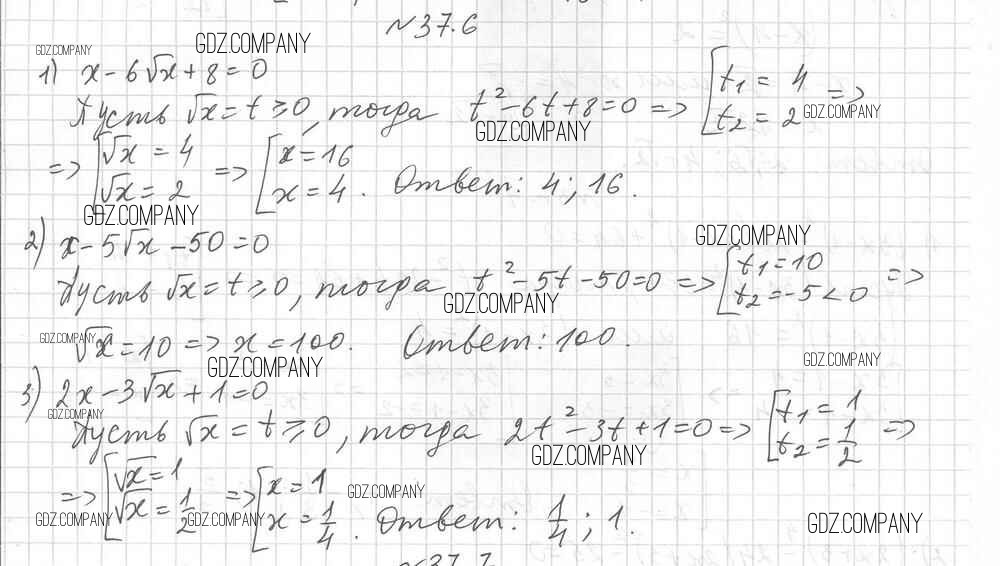 №37.6
GDZ.COMPANY GDZ.COMPANY
1) x - 6√x + 8 = 0
Пусть √x = t ≥ 0, тогда t² - 6t + 8 = 0 => [t₁ = 4 =>
GDZ.COMPANY t₂ = 2 GDZ.COMPANY
=> [√x = 4 => [x = 16
√x = 2 x = 4. Ответ: 4; 16.
GDZ.COMPANY
2) x - 5√x - 50 = 0 GDZ.COMPANY
Пусть √x = t ≥ 0, тогда t² - 5t - 50 = 0 => [t₁ = 10 =>
GDZ.COMPANY t₂ = -5 < 0
GDZ.COMPANY √x = 10 => x = 100. Ответ: 100.
GDZ.COMPANY GDZ.COMPANY
3) 2x - 3√x + 1 = 0
GDZ.COMPANY
Пусть √x = t ≥ 0, тогда 2t² - 3t + 1 = 0 => [t₁ = 1 =>
GDZ.COMPANY t₂ = 1/2
=> [√x = 1 => [x = 1 GDZ.COMPANY
√x = 1/2 x = 1/4. Ответ: 1/4; 1.
GDZ.COMPANY GDZ.COMPANY GDZ.COMPANY
№37.7